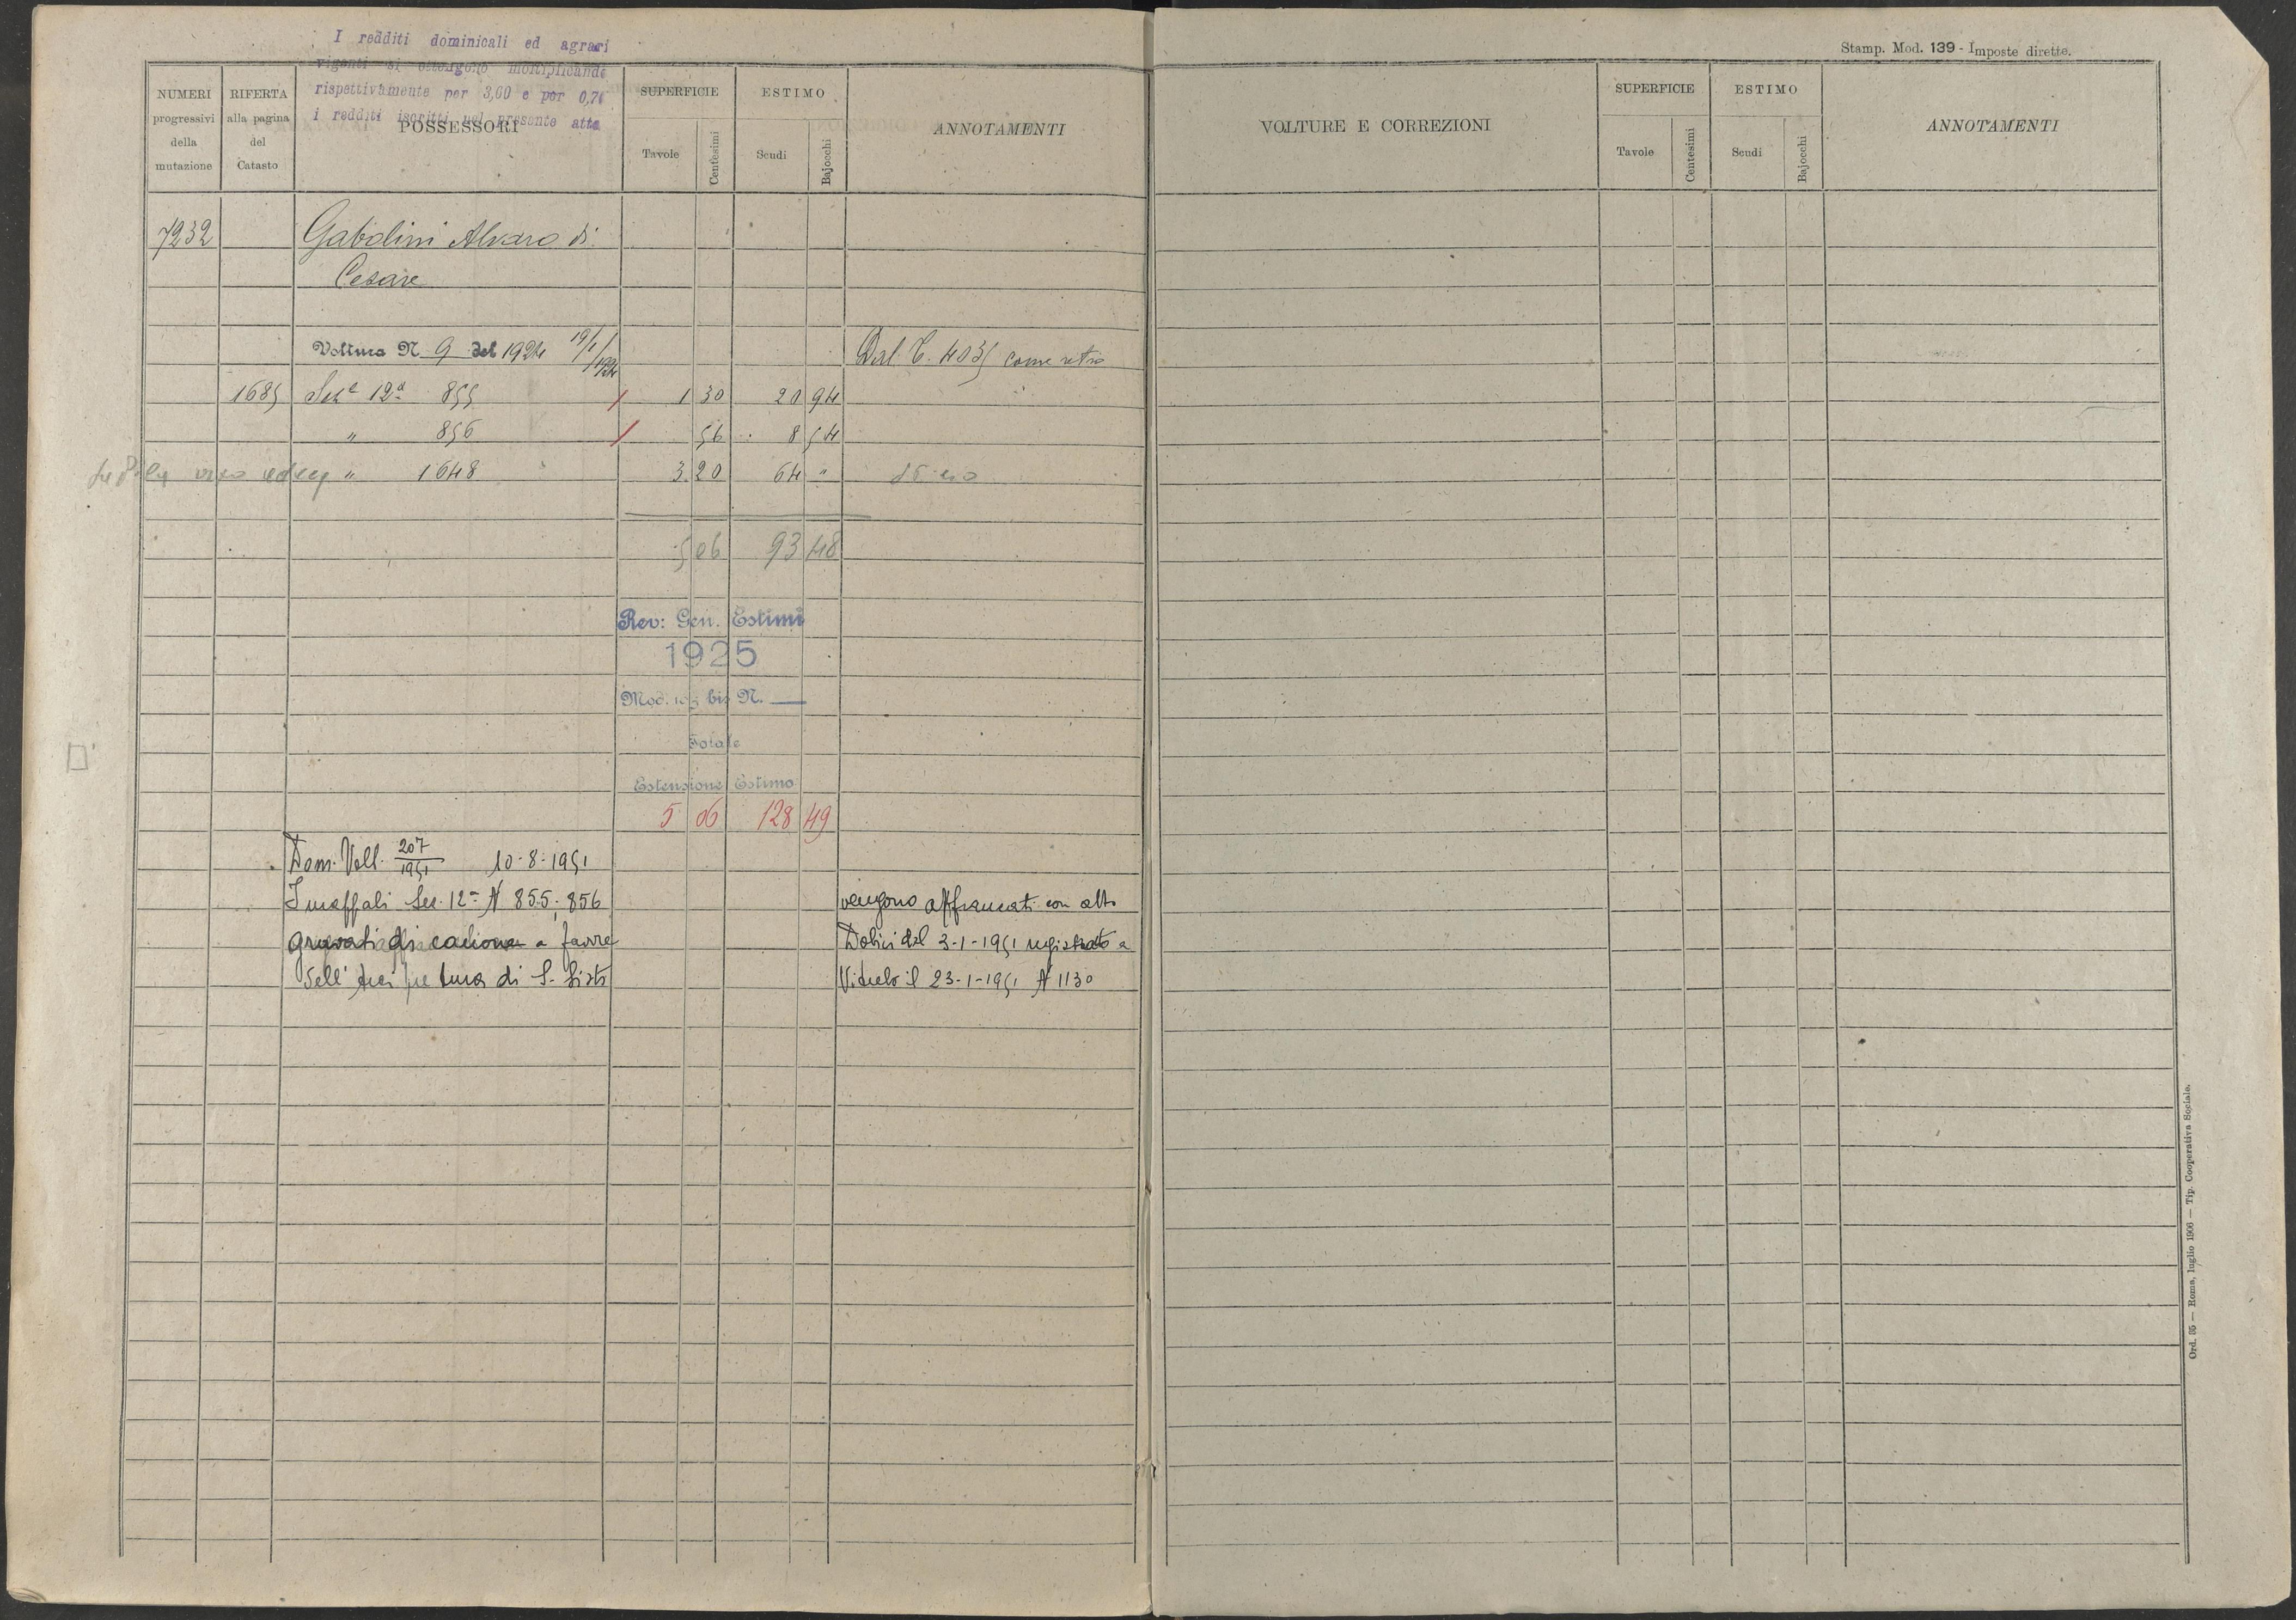 I redditi dominicali ed agrari
vigenti si ottengono moltiplicando
rispettivamente per 3,60 e per 0,70
i redditi iscritti nel presente atto
NUMERI progressivi della mutazione
RIFERTA alla pagina del Catasto
POSSESSORI
SUPERFICIE
Tavole
Centesimi
ESTIMO
Scudi
Bajocchi
ANNOTAMENTI
7232 Gabolini Alvaro di
Cesare
Voltura N. 9 del 1924 19/1/924 Dal C. 4035 come retro
1685 Sez.e 12a 855 1 30 20 94
" 856 56 8 54
" 1648 3.20 64 "
5 06 93 48
Rev: Gen. Estimi
1925
Mod. 103 bis N.
Totale
Estensione Estimo
5 06 128 49
Dom. Volt. 207/1951 10-8-1951
I mappali Sez. 12a N 855, 856 vengono affrancati con atto
gravati di canone a favore Dolici del 3-1-1951 registrato a
dell' di S. Sisto il 23-1-1951 N 1130
Stamp. Mod. 139 - Imposte dirette.
VOLTURE E CORREZIONI
SUPERFICIE
Tavole
Centesimi
ESTIMO
Scudi
Bajocchi
ANNOTAMENTI
Ord. 85 — Roma, luglio 1906 — Tip. Cooperativa Sociale.